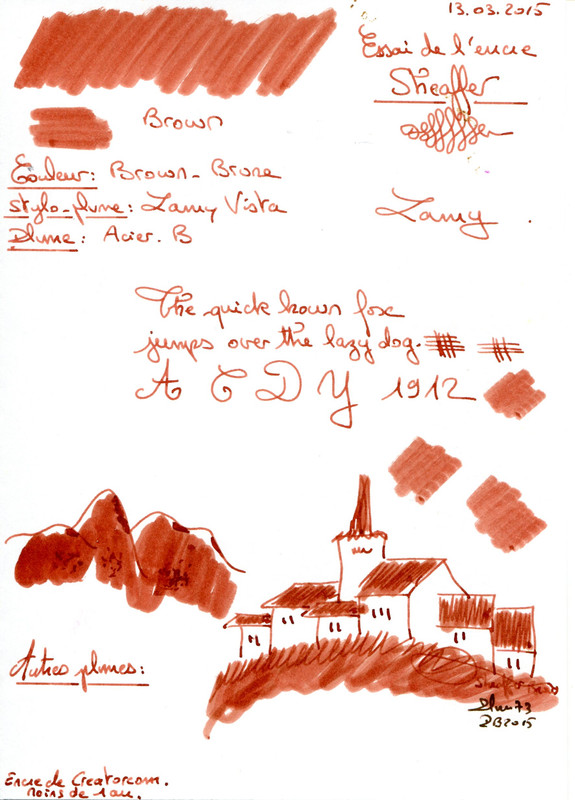 13.03.2015
Essai de l'encre
Sheaffer
Brown
Couleur: Brown-Brune
Stylo-plume: Lamy Vista
Plume: Acier. B
Lamy.
The quick brown fox
jumps over the lazy dog.
A C D Y 1912
Autres plumes:
Sheaffer Brown
DB2015
Encre de Creatorcom.
Moins de 1 an.